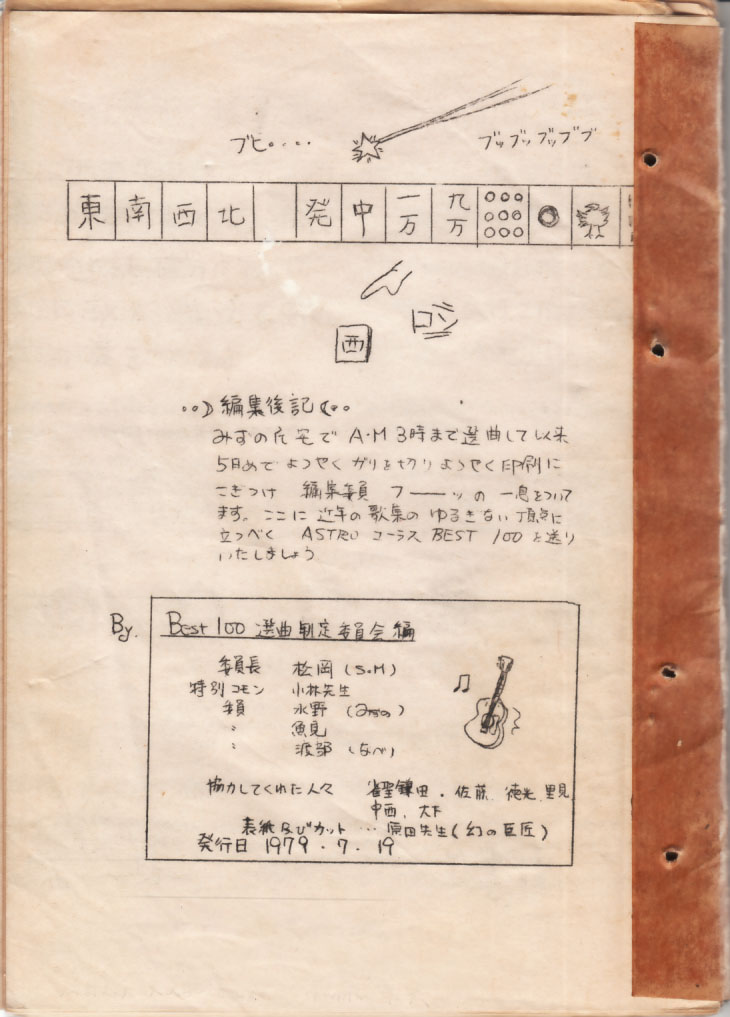 ブピ・・・・
ブッブッブッブブ
東 南 西 北 発 中 一万 九万
ロン
西
編集後記
みずの氏宅で A・M 3時まで選曲して以来
5日めで ようやく ガリを切り ようやく印刷に
こぎつけ 編集委員 フーーッの 一息をついて
ます。ここに 近年の歌集の ゆるぎない 頂点に
立つべく ASTRO コーラス BEST 100 を送り
いたしましょう
By.
Best 100 選曲制定委員会編
委員長 松岡 (S.M)
特別コモン 小林先生
委員 水野 (みずの)
〃 魚見
〃 渡部 (なべ)
協力してくれた人々 雀聖鎌田・佐藤 徳光 里見
中西、大下
表紙及びカット … 原田先生 (幻の巨匠)
発行日 1979．7．19